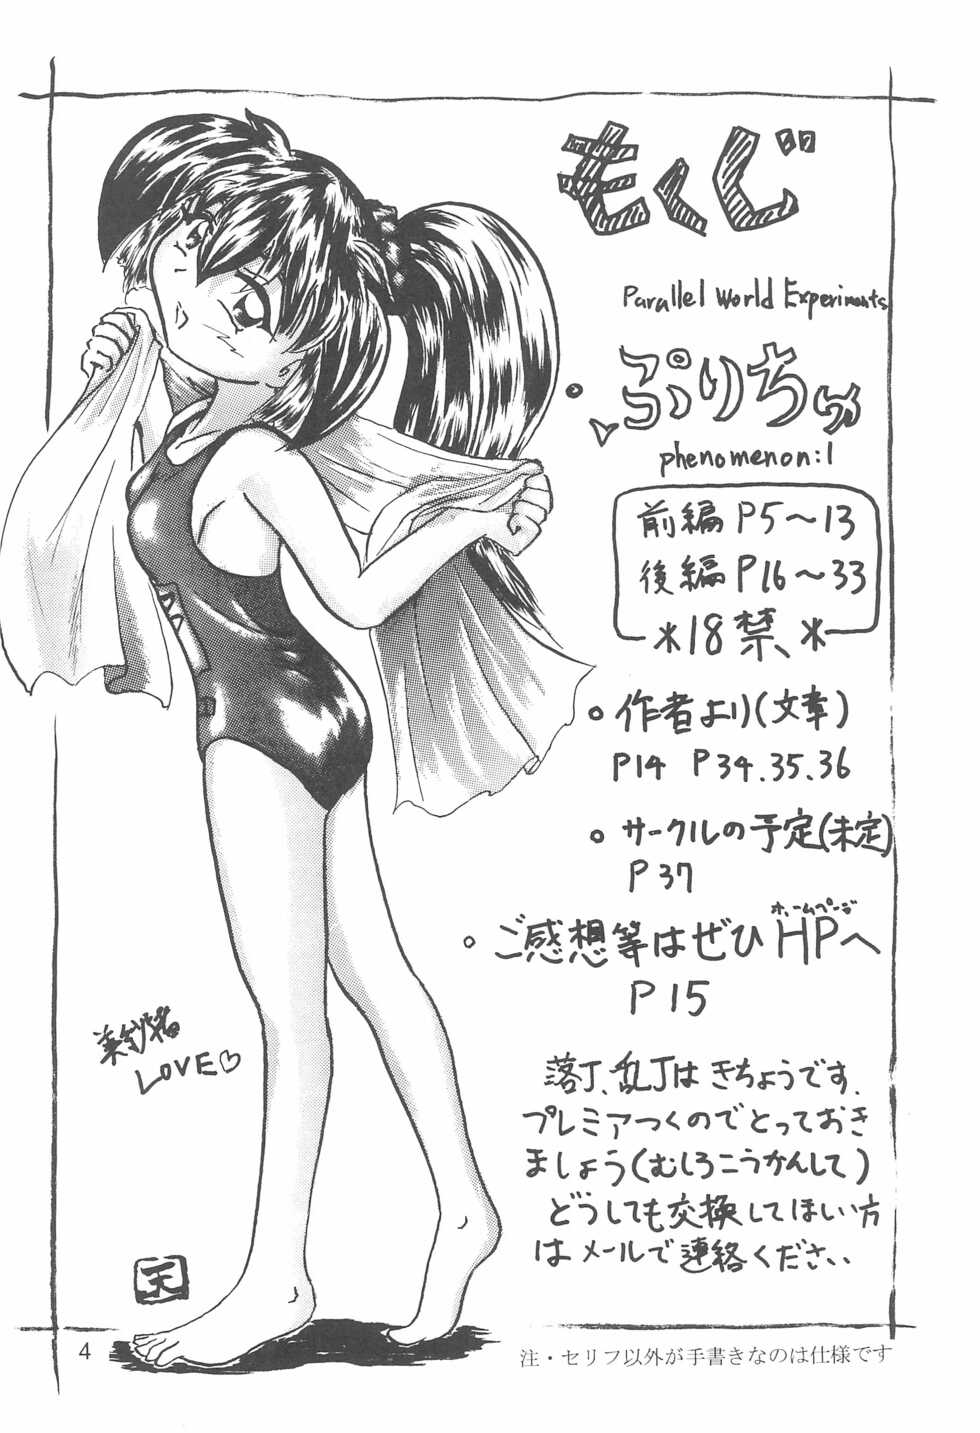 もくじ
Parallel World Experiments
ぷりちゅ
phenomenon:1
前編 P5～13
後編 P16～33
*18禁*
○ 作者より(文章)
P14 P34.35.36
○ サークルの予定(未定)
P37
○ ご感想等はぜひHPへ
ホームページ
P15
落丁、乱丁はきちょうです。
プレミアつくのでとっておき
ましょう(むしろこうかんして)
どうしても交換してほしい方
はメールで連絡ください。
LOVE♡
天
4
注・セリフ以外が手書きなのは仕様です